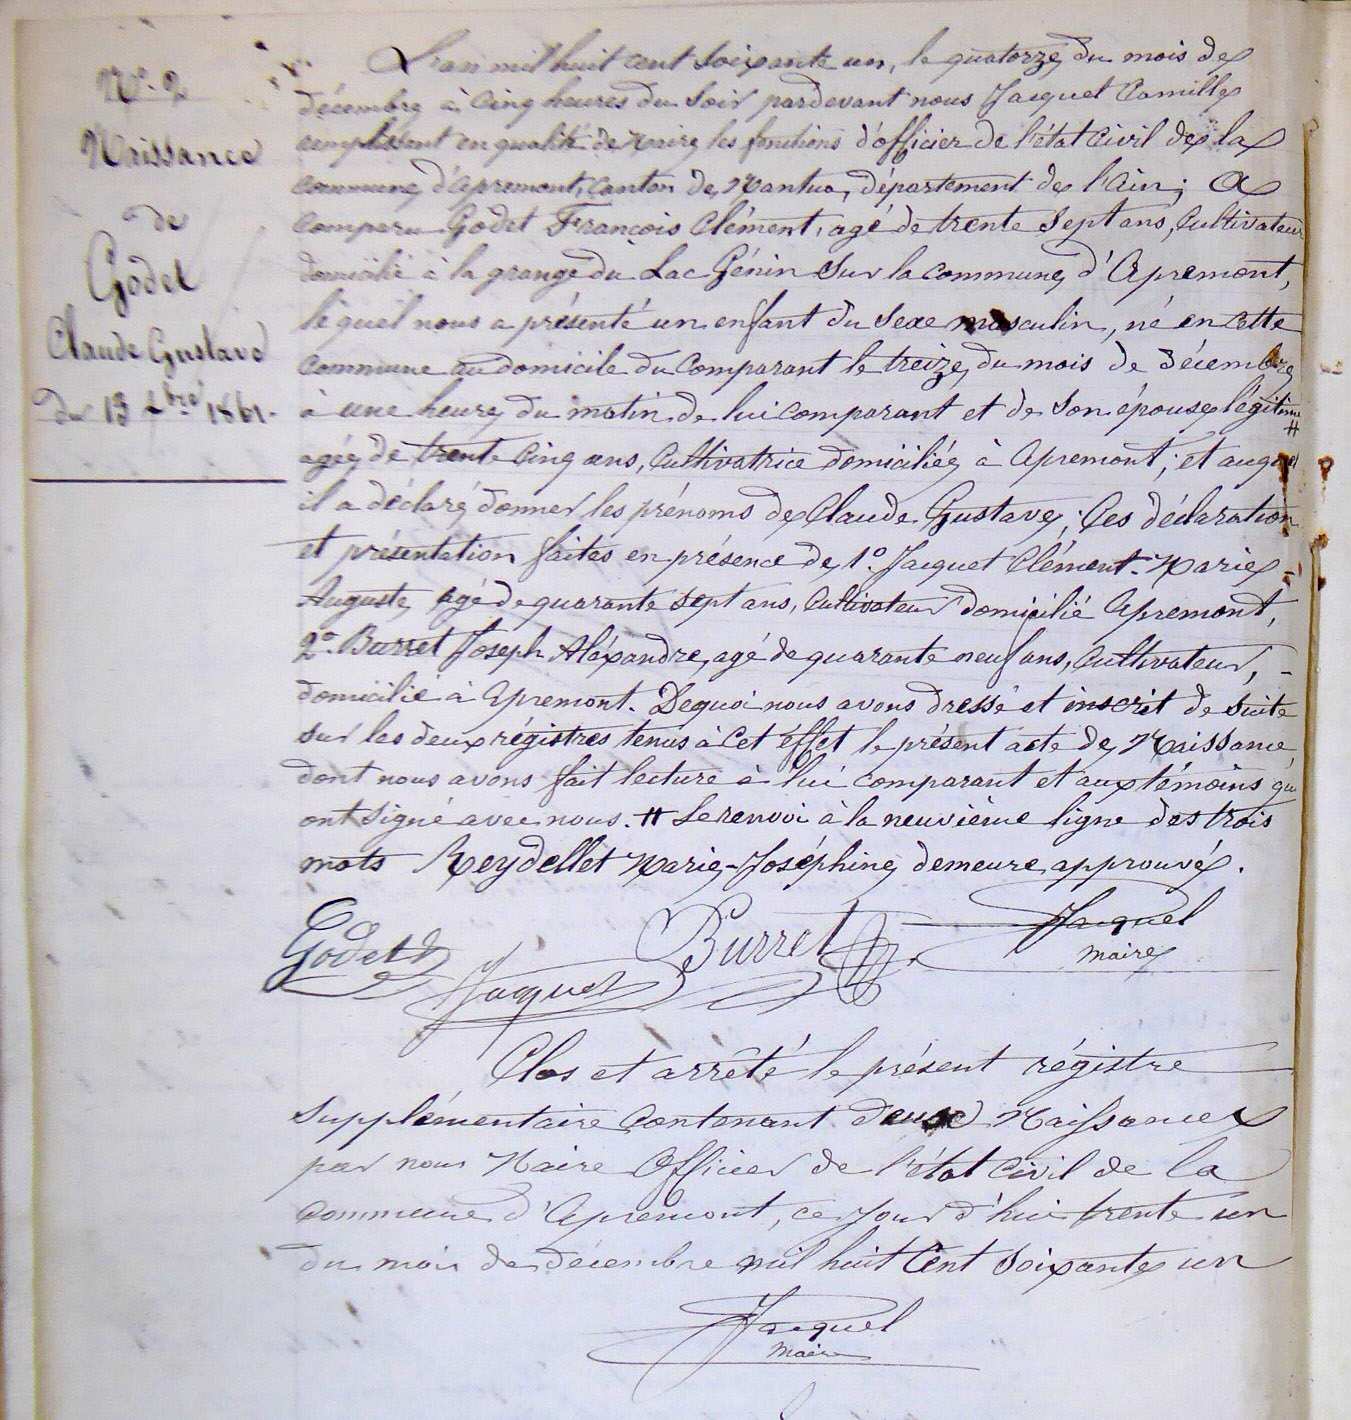 N° 2
Naissance
de
Godet
Claude Gustave
du 13 Xbre 1861.
L'an mil huit cent soixante un, le quatorze du mois de
décembre à cinq heures du soir pardevant nous Jacquet Camille
remplissant en qualité de Maire les fonctions d'officier de l'état civil de la
commune d'Apremont, canton de Nantua, département de l'Ain; a
comparu Godet François Clément, agé de trente sept ans, cultivateur
domicilié à la grange du Lac Génin sur la commune d'Apremont,
lequel nous a présenté un enfant du sexe masculin, né en cette
commune au domicile du comparant le treize du mois de Décembre
à une heure du matin de lui comparant et de son épouse légitime #
agée de trente cinq ans, cultivatrice domiciliée à Apremont; et auquel
il a déclaré donner les prénoms de Claude Gustave; Ces déclaration
et présentation faites en présence de 1° Jacquet Clément-Marie-
Auguste, agé de quarante sept ans, cultivateur domicilié Apremont,
2° Burret Joseph Aléxandre, agé de quarante neuf ans, cultivateur, -
domicilié à Apremont. Dequoi nous avons dressé et inscrit de suite
sur les deux régistres tenus à cet éffet le présent acte de Naissance
dont nous avons fait lecture à lui comparant et aux témoins qui
ont signé avec nous. # Le renvoi à la neuvième ligne des trois
mots Reydellet Marie-Joséphine demeure approuvé.
Godet
Jacquet
Burret
Jacquet
maire
Clos et arrêté le présent régistre
supplémentaire contenant deux Naissances
par nous Maire Officier de l'état civil de la
commune d'Apremont, ce jour d'hui trente un
du mois de décembre mil huit cent soixante un
Jacquet
Maire